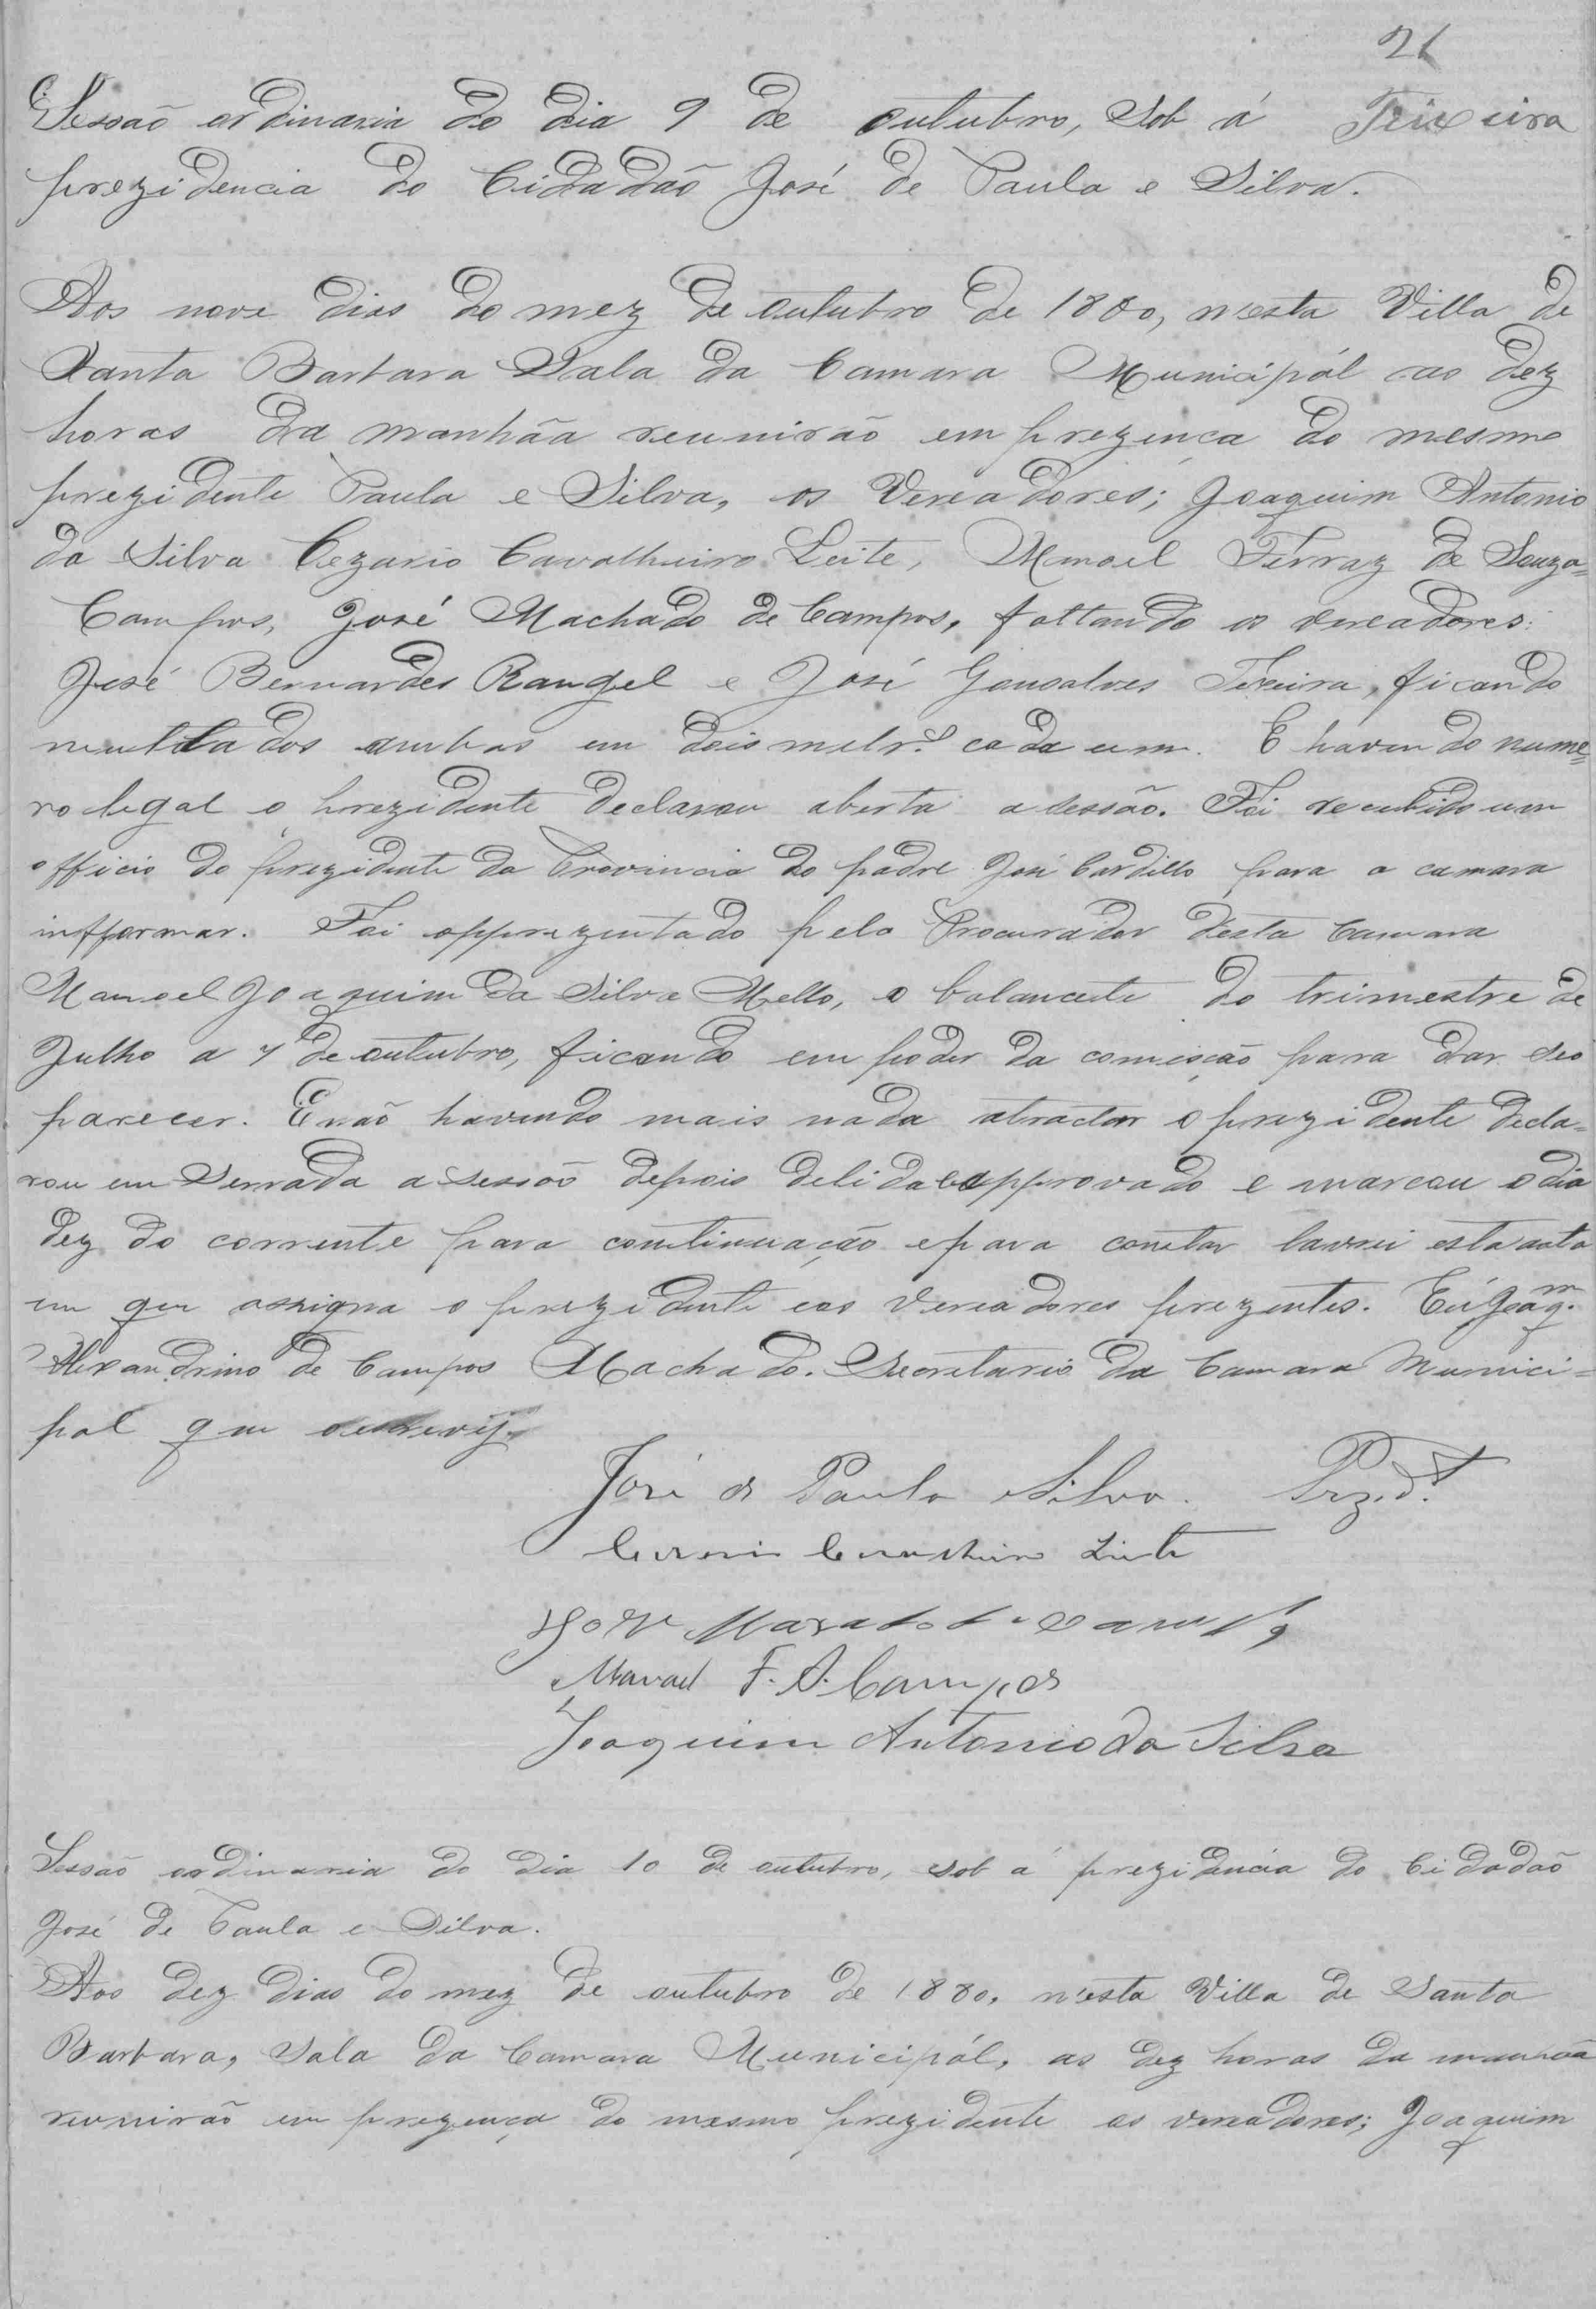 21
Teixeira
Sessão ordinaria do dia 9 de outubro, sob á
prezidencia do Cidadão José de Paula e Silva.
Aos nove dias do mez de outubro de 1880, n'esta Villa de
Santa Barbara Sala da Camara Municipál as dez
horas da manhãa reunirão em prezença do mesmo
prezidente Paula e Silva, os Vereadores; Joaquim Antonio
da Silva Cezario Cavalheiro Leite, Manoel Ferraz de Souza=
Campos, José Machado de Campos, faltando os vereadores:
José Bernardes Rangel e José Gonsalves Texeira, ficando
multados ambos em dois melrs cada um. E havendo nume=
ro legal o prezidente declarou aberta a sessão. Foi recebido um
officio do prezidente da Provincia do padre José Cardillo para a camara
infformar. Foi apprezentado pelo Procurador desta Camara
Manoel Joaquim da Silva Mello, o balancete do trimestre de
Julho a 7 de outubro, ficando em poder da comisção para dar seo
parecer. E naõ havendo mais nada atractar o prezidente decla=
rou em serrada a sessão depois de lida e approvado e marcou o dia
dez do corrente para continuação e para constar lavrei esta acta
em que assigna o prezidente e os Vereadores prezentes. Eu Joaqm.
Alexandrino de Campos Machado. Secretario da Camara Munici=
pal que escrevy.
José de Paula e Silva. Prezd.t
Cezario Cavalheiro Leite
José Machado de Campos
Manoel F. S. Campos
Joaquim Antonio da Silva
Sessaõ ordinaria do dia 10 de outubro, sob á prezidencia do Cidadaõ
José de Paula e Silva.
Aos dez dias do mez de outubro de 1880, n'esta Villa de Santa
Barbara, Sala da Camara Municipál, as dez horas da manhãa
reunirão em prezença do mesmo prezidente os vereadores; Joaquim